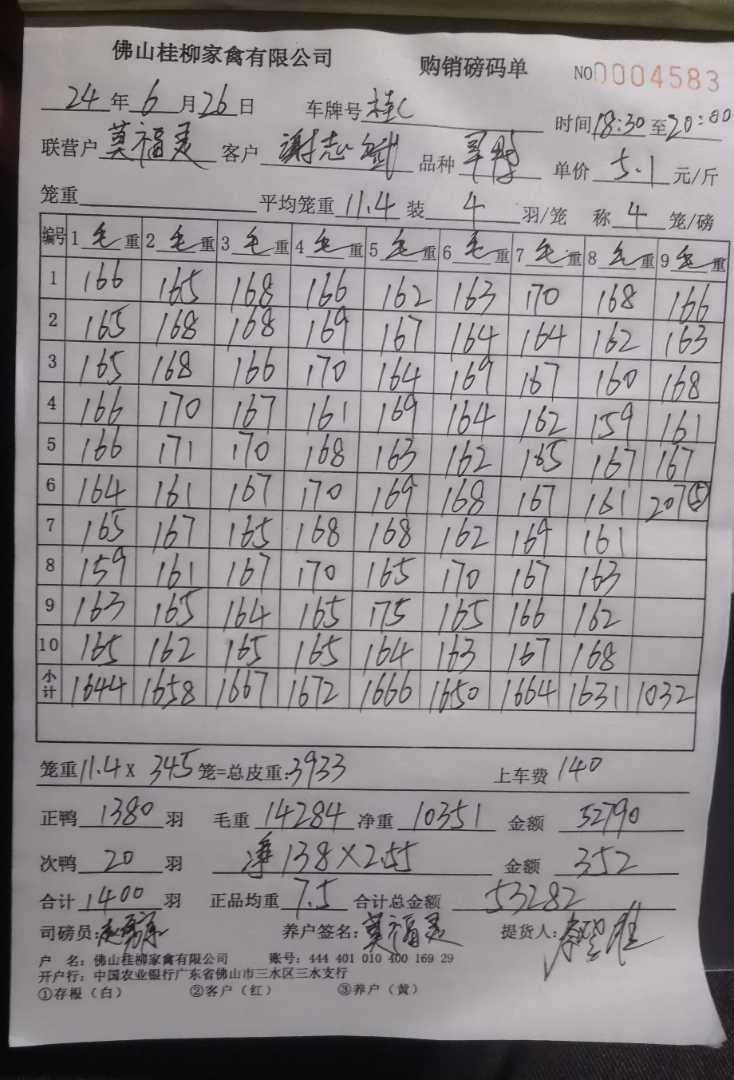 佛山桂柳家禽有限公司 购销磅码单 NO 0004583
24年6月26日 车牌号 桂C 时间18:30至20:00
联营户 莫福美 客户 谢志 品种 单价 5.1 元/斤
笼重 平均笼重 11.4 装 4 羽/笼 称 4 笼/磅
编号 1 毛重 2 毛重 3 毛重 4 毛重 5 毛重 6 毛重 7 毛重 8 毛重 9 毛重
1 166 165 168 166 162 163 170 168 166
2 165 168 168 169 167 164 164 162 163
3 165 168 166 170 164 169 167 160 168
4 166 170 167 161 169 164 162 159 161
5 166 171 170 168 163 162 165 167 167
6 164 161 167 170 169 168 167 161 207⑤
7 165 167 165 168 168 162 169 161
8 159 161 167 170 165 170 167 163
9 163 165 164 165 175 165 166 162
10 165 162 165 165 164 163 167 168
小计 1644 1658 1667 1672 1666 1650 1664 1631 1032
笼重 11.4 X 345 笼=总皮重: 3933 上车费 140
正鸭 1380 羽 毛重 14284 净重 10351 金额 52790
次鸭 20 羽 净 138×2.55 金额 352
合计 1400 羽 正品均重 7.5 合计总金额 53282
司磅员: 养户签名: 莫福美 提货人:
户 名: 佛山桂柳家禽有限公司 账号: 444 401 010 400 169 29
开户行: 中国农业银行广东省佛山市三水区三水支行
①存根（白） ②客户（红） ③养户（黄）